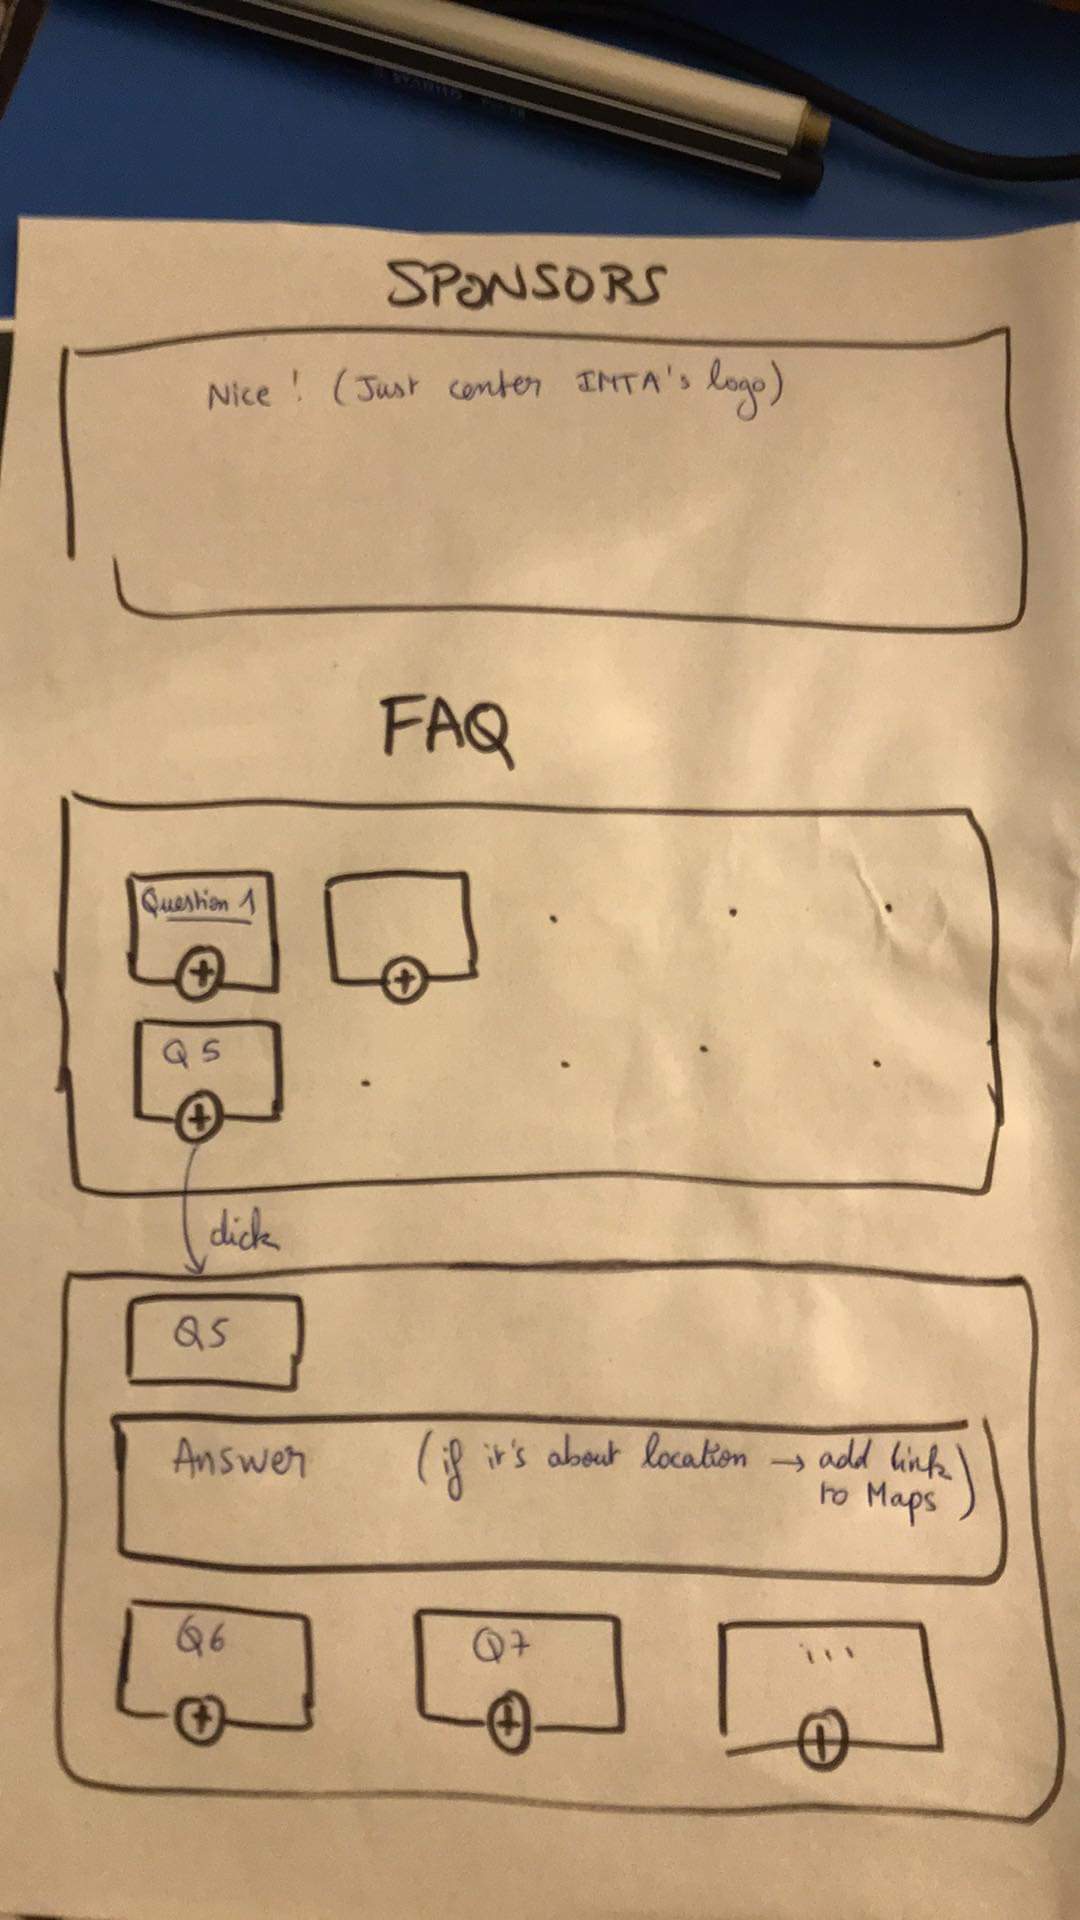 STABILO
SPONSORS
Nice ! (Just center IMTA's logo)
FAQ
Question 1
+
+
Q5
+
click
Q5
Answer (if it's about location → add link
to Maps)
Q6
Q7
...
+
+
+